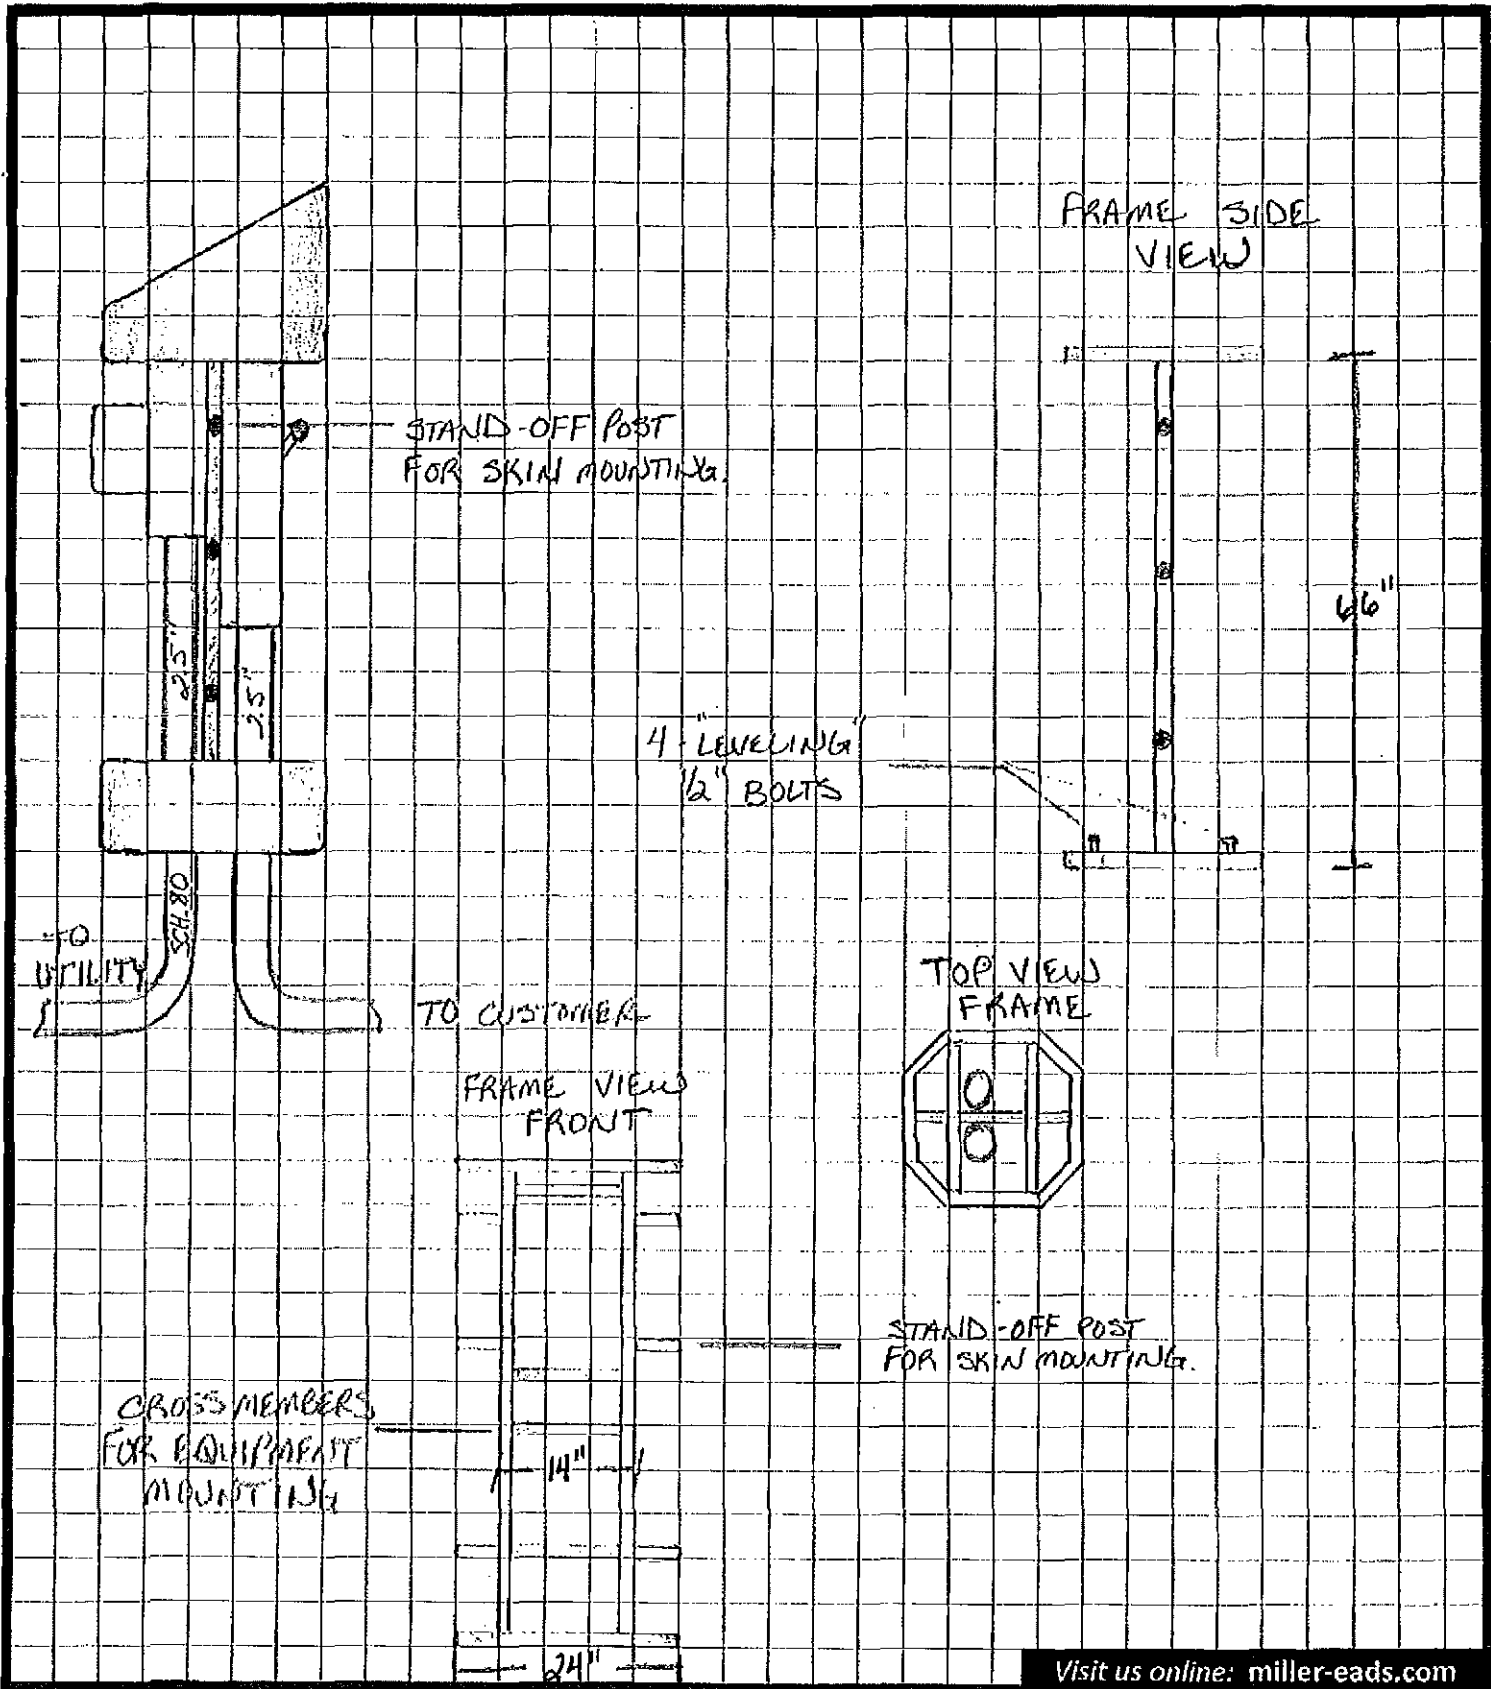 FRAME SIDE
VIEW
STAND-OFF POST
FOR SKIN MOUNTING.
66"
2.5"
2.5"
4-"LEVELING"
1/2" BOLTS
SCH-80
TO
UTILITY
TO CUSTOMER
TOP VIEW
FRAME
FRAME VIEW
FRONT
STAND-OFF POST
FOR SKIN MOUNTING.
CROSS MEMBERS
FOR EQUIPMENT
MOUNTING
14"
24"
Visit us online: miller-eads.com